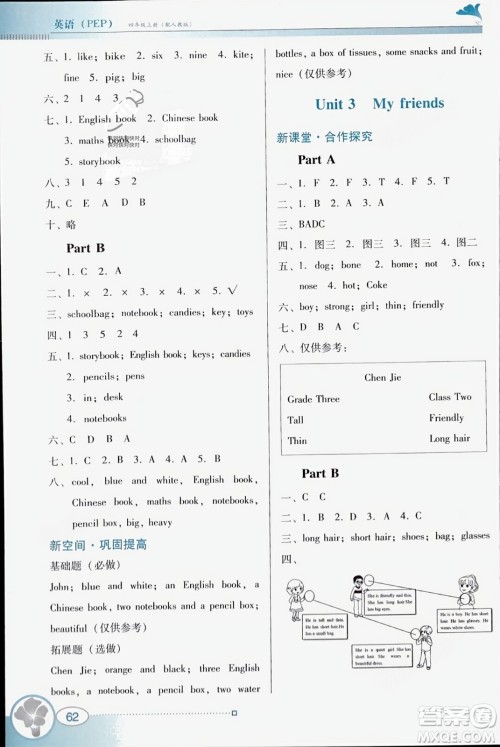 英语（PEP） 四年级上册（配人教版）
五、1. like；bike 2. white；kite
5. pig；big
六、2 1 4 3
七、1. English book 2. Chinese book
3. maths book 4. schoolbag
5. storybook
八、3 1 4 5 2
九、C E A D B
十、略
Part B
一、1. C 2. A
二、1. × 2. × 3. 4. × 5. √
三、schoolbag；notebook；candies；key；toys
四、1 3 5 2 4
五、1. storybook；English book；keys；candies
2. pencils；pens
3. in
4. notebooks
六、C D B A
七、1. C 2. B 3. A 4. B 5. B
八、cool, blue and white, English book,
Chinese book, maths book, notebooks,
pencil box, big, heavy
新空间·巩固提高
基础题（必做）
John；blue and white；an English book, a
Chinese book, two notebooks and a pencil box；
beautiful（仅供参考）
拓展题（选做）
Chen Jie；orange and black；three English
books, two notebooks, a pencil box, two water
62
bottles, a box of tissues, some snacks and fruit；
nice（仅供参考）
Unit 3 My friends
新课堂·合作探究
Part A
一、1. F 2. F 3. T 4. T 5. F
二、1. C 2. A 3. A 4. B
三、BADC
四、1. 图三 2. 图三 3. 图三 4. 图二
五、1. dog；bone 2. home；no 3. fox；
nose 4. hot；Coke
六、boy；strong；girl；thin；friendly
七、D A C B
八、仅供参考：
Chen Jie
Grade Three Class Two
Tall Friendly
Thin Long hair
Part B
一、C C
二、1. C 2. C 3. A 4. B 5. A
三、long hair；short hair；shoes；bag；glasses
四、
答案圈
MXQE.COM